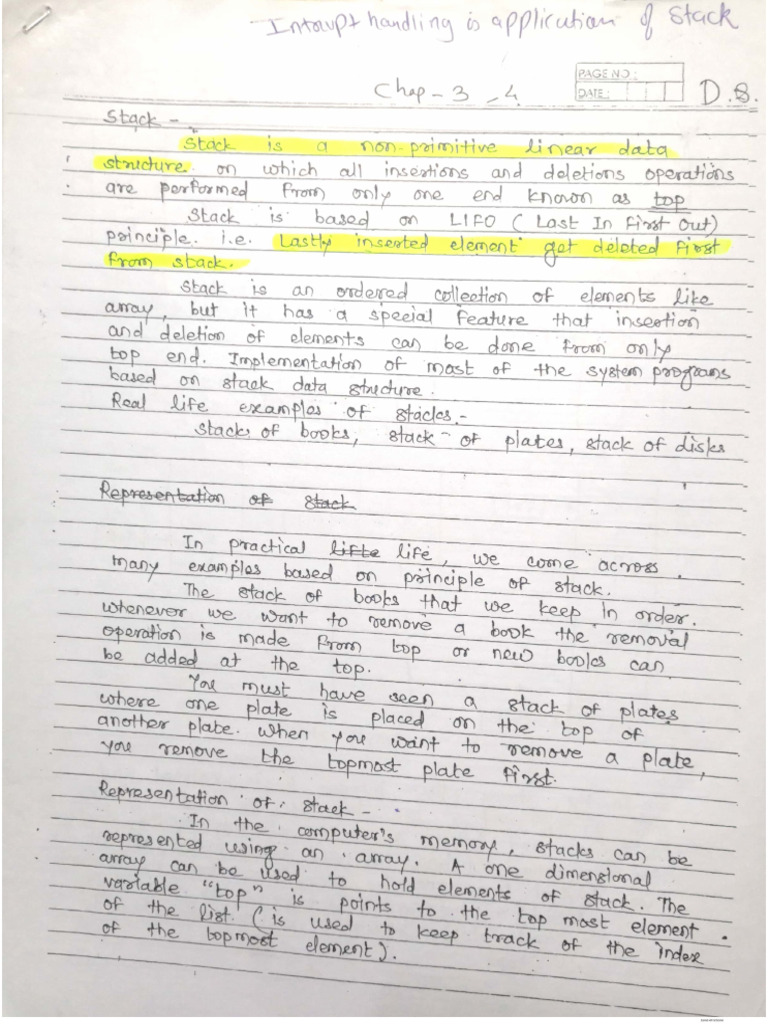 Intrupt handling is application of Stack
PAGE NO :
Chap - 3 - 4
DATE :
D.S.
Stack -
Stack is a non-primitive linear data
structure on which all insertions and deletions operations
are performed from only one end known as top
Stack is based on LIFO (Last In First Out)
principle. i.e. Lastly inserted element get deleted first
from stack.
Stack is an ordered collection of elements like
array, but it has a special feature that insertion
and deletion of elements can be done from only
top end. Implementation of most of the system programs
based on stack data structure.
Real life examples of stacks.-
stack of books, stack of plates, stack of disks
Representation of stack
In practical lifte life, we come across
many examples based on principle of stack.
The stack of books that we keep in order.
whenever we want to remove a book the removal
operation is made from top or new books can
be added at the top.
You must have seen a stack of plates
where one plate is placed on the top of
another plate. when you want to remove a plate,
you remove the topmost plate first.
Representation of stack -
In the computer's memory, stacks can be
represented using an array. A one dimensional
array can be used to hold elements of stack. The
variable "top" is points to the top most element
of the list. (is used to keep track of the index
of the topmost element).